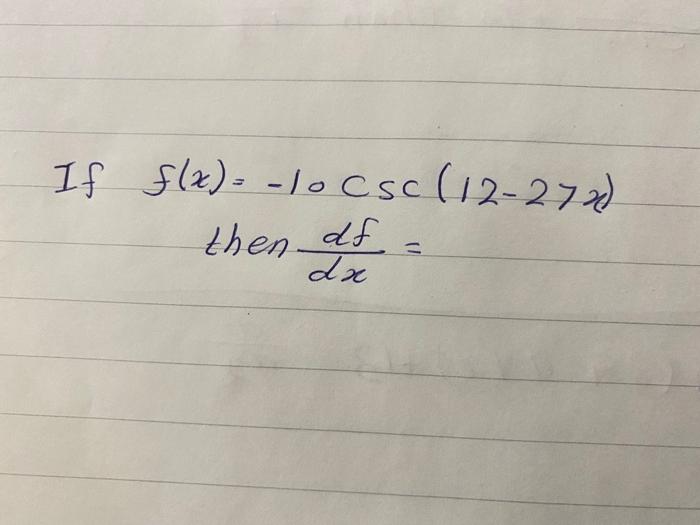 If f(x) = -10 csc(12-27x)
then df/dx =